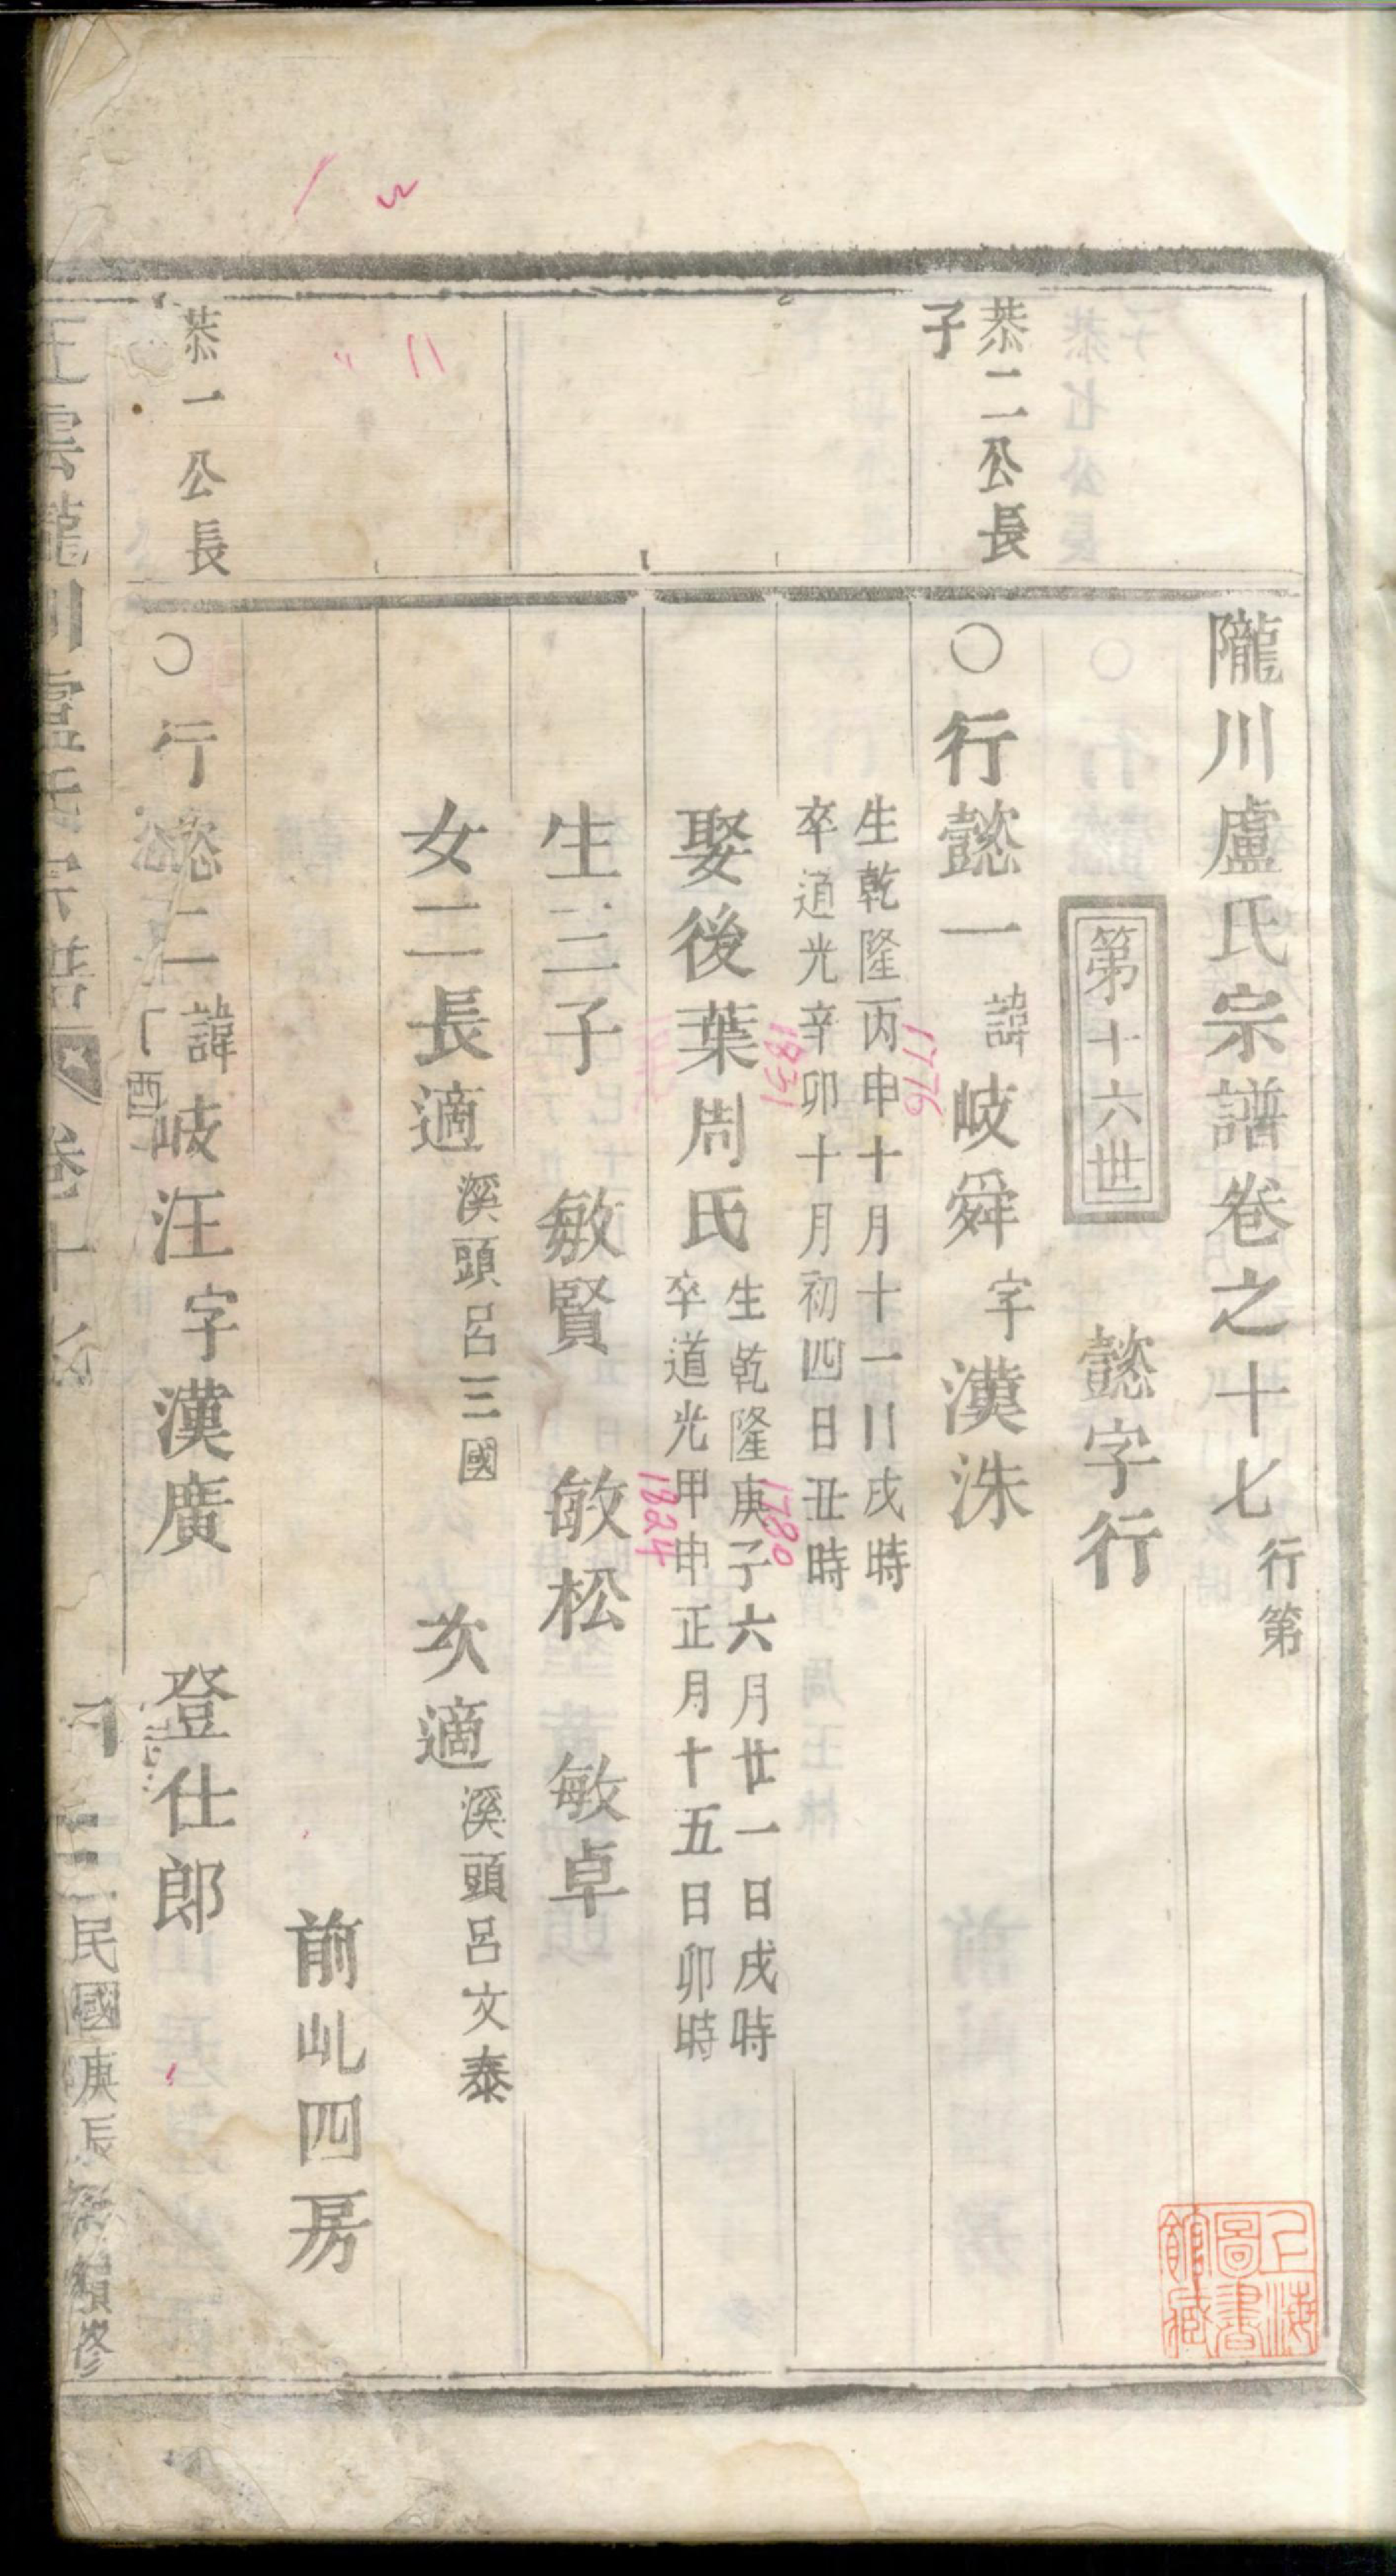 隴川盧氏宗譜卷之十七 行第
第十六世 懿字行
恭二公長
子
○行懿一 諱岐舜 字漢洙
生乾隆丙申十月十一日戌時
卒道光辛卯十月初四日丑時
1776
1831
娶後葉周氏
生乾隆庚子六月廿一日戌時
卒道光甲申正月十五日卯時
1780
1824
生三子 敏賢 敏松 敏卓
女二長適 溪頭呂三國 次適 溪頭呂文泰
前乢四房
恭一公長
○行懿二 諱岐汪 字漢廣 登仕郎
玉雲隴川盧氏宗譜 卷十七
民國庚辰 續修
上海圖書館藏